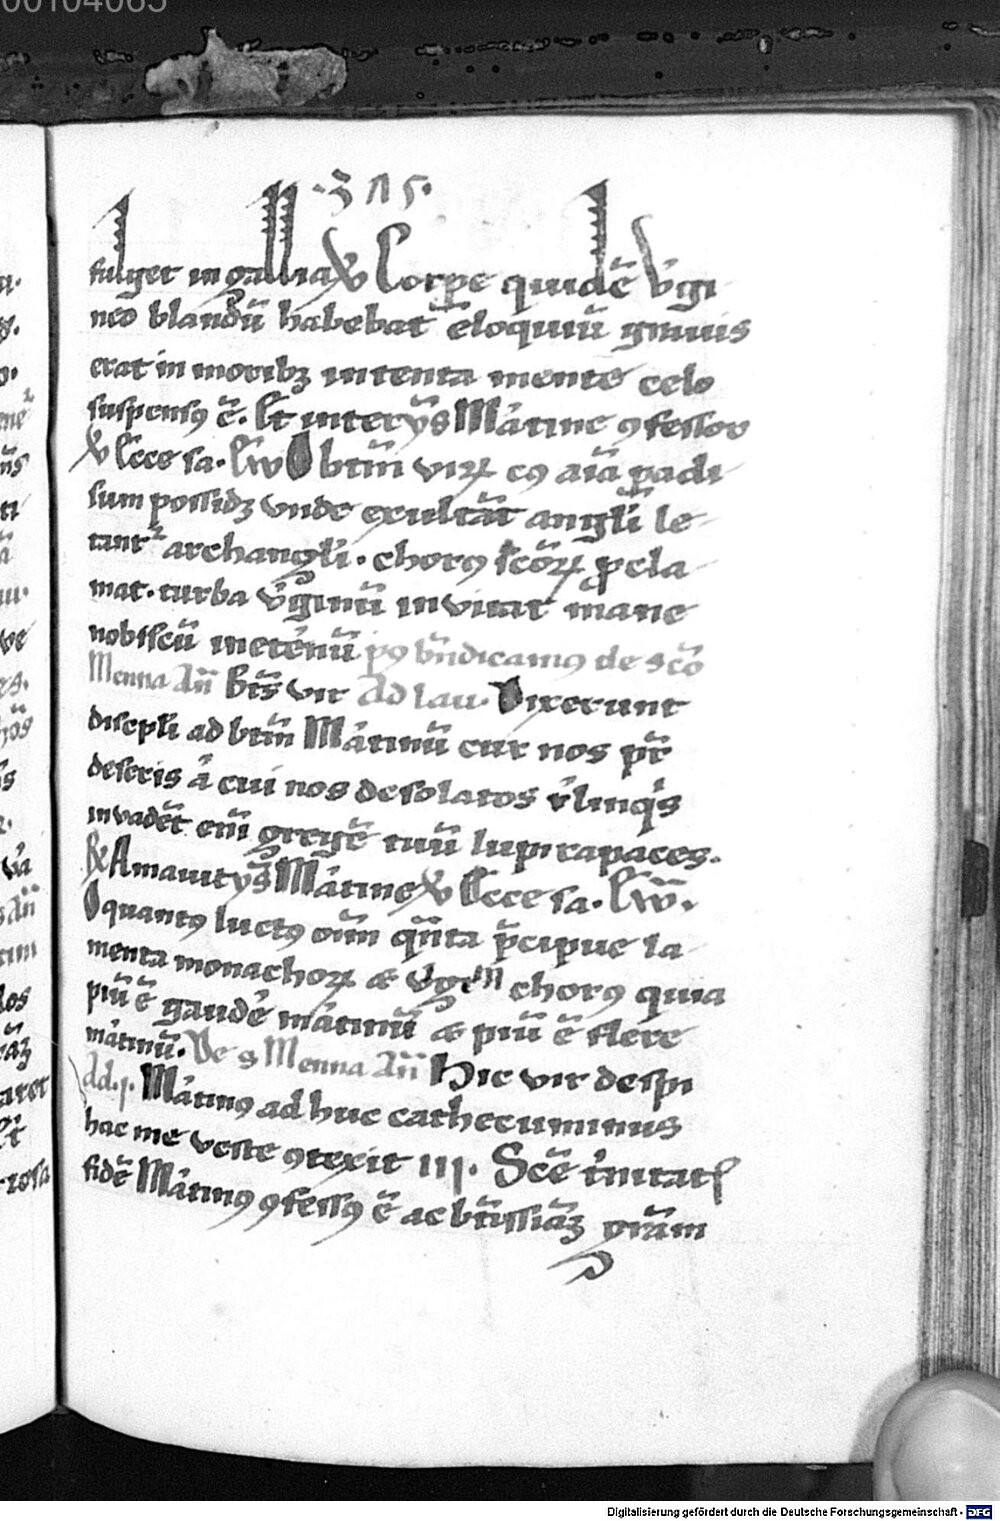 00104065
·375·
fulget in gallia ℣ Corpe quidē v̇gi
neo blandū habebat eloquiū grauis
erat in moribꝫ intenta mente celo
suspensꝯ ē. Lt̄ inter ȳs Mȧtine ꝯfessor
℣ Ecce sa. Ew̄ O btm̄ virꝝ cꝯ aīa padi
sum possidꝫ vnde exultāt angłi le
tantʳ archangłi. chorꝯ scōꝝ ꝓcla
mat. turba v̇ginū invitat mane
nobiscū in etėnū pꝯ bn̄dicamꝯ de scō
Menna Añ Bt̄s vir Ad lau. Dixerunt
discipłi ad btm̄ Mȧtinū cur nos pr̄
deseris ȧ cui nos desolatos ṙlinqꝭs
invadēt em̄ gregē tuū lupi rapaces.
℟ Amauit ȳs Mȧtine ℣ Ecce sa. Ew̄.
O quantꝯ luctꝯ om̄ qn̄ta p̄cipue la
menta monachoꝝ & v̇gem chorꝯ quia
piū ē gaudė mȧtinū & piū ē flere
mȧtinū. De s Menna Añ Hic vir despi
Ad.j. Mȧtinꝯ ad huc cathecuminus
hac me veste ꝯtexit III. Scē tṙnitatꝭ
fidē Mȧtinꝯ ꝯfessꝯ ē ac bt̄issiāꝫ grām
Digitalisierung gefördert durch die Deutsche Forschungsgemeinschaft - DFG